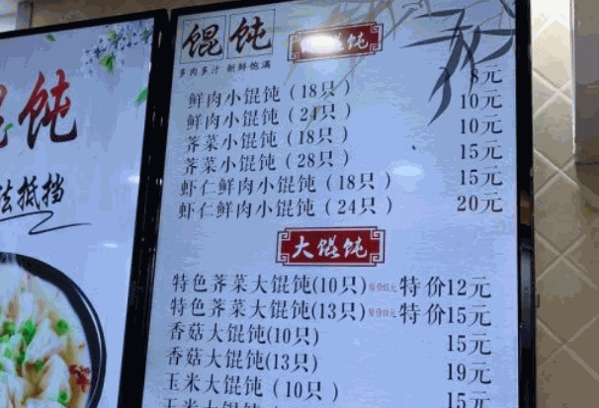 馄饨
法抵挡
馄饨
多肉多汁 新鲜饱满
馄饨
鲜肉小馄饨（18只） 8元
鲜肉小馄饨（24只） 10元
荠菜小馄饨（18只） 10元
荠菜小馄饨（28只） 15元
虾仁鲜肉小馄饨（18只） 15元
虾仁鲜肉小馄饨（24只） 20元
大馄饨
特色荠菜大馄饨(10只) 特价12元
特色荠菜大馄饨(13只) 特价15元
香菇大馄饨(10只) 15元
香菇大馄饨(13只) 19元
玉米大馄饨（10只） 15元